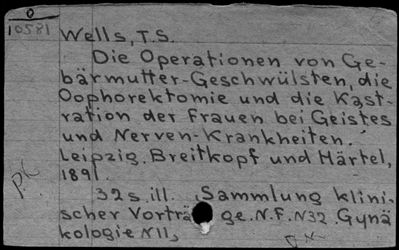 0
10581
Wells, T.S.
Die Operationen von Ge-
bärmutter-Geschwülsten, die
Oophorektomie und die Kast-
ration der Frauen bei Geistes
und Nerven-Krankheiten.
Leipzig. Breitkopf und Härtel,
1891.
32s. ill. Sammlung klini-
scher Vorträ ge. N.F. N32 Gynä
kologie N11,